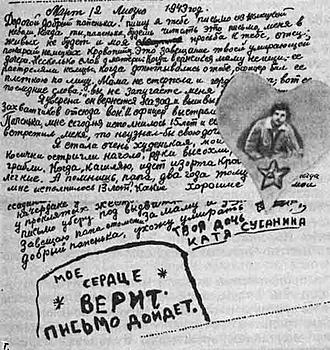 Март 12 Лиозно 1943 год
Дорогой добрый папенька! пишу я тебе письмо из немецкой
неволи. Когда ты, папенька, будешь читать это письмо, меня в
живых не будет. И моя просьба к тебе, отец:
покарай немецких кровопийц. Это завещание твоей умирающей
дочери. Несколько слов о матери. Когда вернешься, маму не ищи. Ее
расстреляли немцы. Когда допытывались о тебе, офицер бил ее
плеткой по лицу. Мама не стерпела и гордо вот ее
последние слова: вы не запугаете меня
Я уверена он вернется назад и выш
захватчиков отсюда вон. И офицер выстр
Папенька, мне сегодня исполнилось 15 лет и если
встретил меня, то не узнал бы свою доч
Я стала очень худенькая, мои
Косички остригли наголо, руки высохл
грабли. Когда я кашляю, идет изо рта кро
легкие. А помнишь, папа, два года тому когда
мне исполнилось 13 лет? Какие хорошие мои
письмо уберу под
Завещаю папа отомсти за маму и
добрый папенька, ухожу умирать
ТВОЯ ДОЧЬ
КАТЯ СУСАНИНА
МОЕ
СЕРДЦЕ
ВЕРИТ.
ПИСЬМО ДОЙДЕТ.
Г.